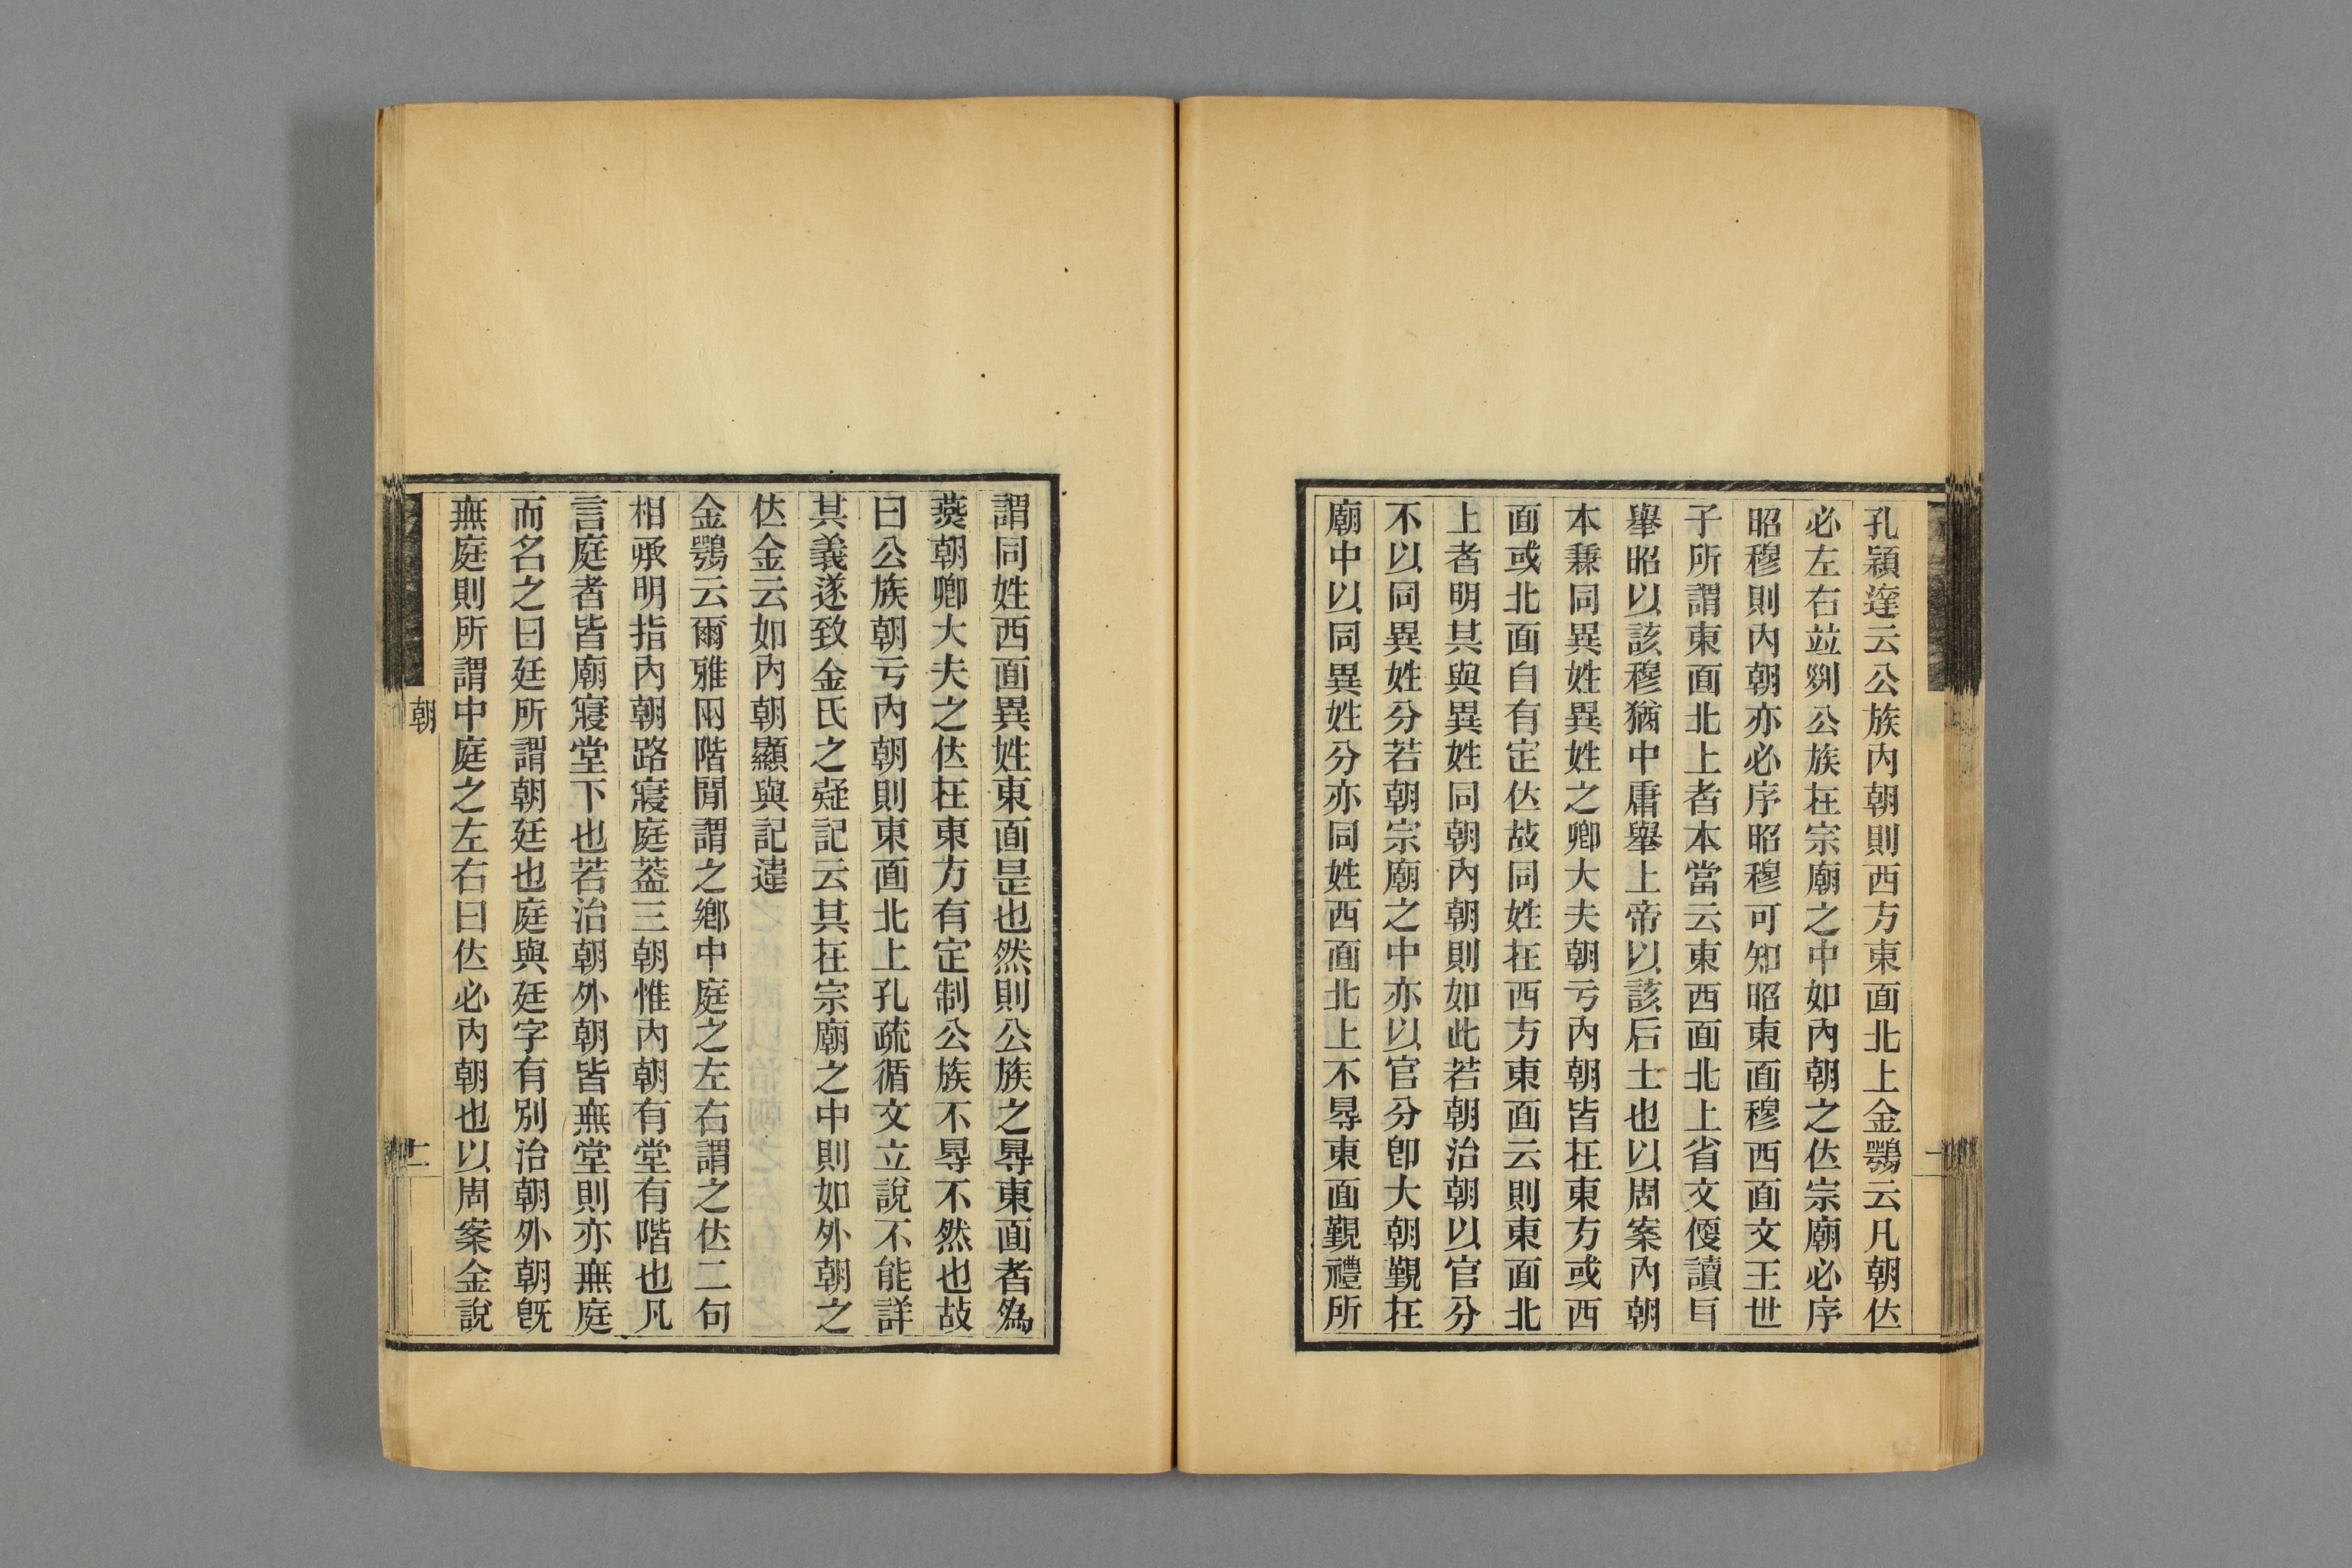 孔穎達云公族內朝則西方東面北上金鶚云凡朝位
必左右竝列公族在宗廟之中如內朝之位宗廟必序
昭穆則內朝亦必序昭穆可知昭東面穆西面文王世
子所謂東面北上者本當云東西面北上省文㥠讀㠯
舉昭以該穆猶中庸舉上帝以該后土也以周案內朝
本兼同異姓異姓之卿大夫朝亏內朝皆在東方或西
面或北面自有定位故同姓在西方東面云則東面北
上者明其與異姓同朝內朝則如此若朝治朝以官分
不以同異姓分若朝宗廟之中亦以官分卽大朝覲在
廟中以同異姓分亦同姓西面北上不㝵東面覲禮所
謂同姓西面異姓東面是也然則公族之㝵東面者爲
燕朝卿大夫之位在東方有定制公族不㝵不然也故
曰公族朝亏內朝則東面北上孔疏循文立說不能詳
其義遂致金氏之疑記云其在宗廟之中則如外朝之
位金云如內朝顯與記違
金鶚云爾雅兩階閒謂之鄉中庭之左右謂之位二句
相承明指內朝路寢庭蓋三朝惟內朝有堂有階也凡
言庭者皆廟寢堂下也若治朝外朝皆無堂則亦無庭
而名之曰廷所謂朝廷也庭與廷字有別治朝外朝旣
無庭則所謂中庭之左右曰位必內朝也以周案金說
朝
二